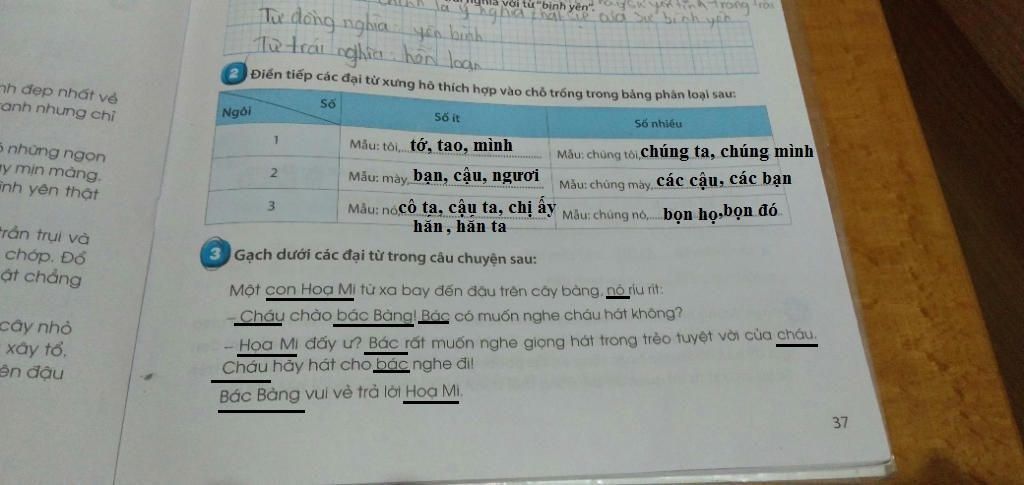 nghĩa với từ "bình yên".
Từ đồng nghĩa: yên bình
Từ trái nghĩa: hỗn loạn
2 Điền tiếp các đại từ xưng hô thích hợp vào chỗ trống trong bảng phân loại sau:
Ngôi Số Số ít Số nhiều
1 Mẫu: tôi, tớ, tao, mình Mẫu: chúng tôi, chúng ta, chúng mình
2 Mẫu: mày, bạn, cậu, ngươi Mẫu: chúng mày, các cậu, các bạn
3 Mẫu: nó, cô ta, cậu ta, chị ấy Mẫu: chúng nó, bọn họ,bọn đó
hắn , hắn ta
3 Gạch dưới các đại từ trong câu chuyện sau:
Một con Hoạ Mi từ xa bay đến đậu trên cây bàng, nó ríu rít:
– Cháu chào bác Bàng! Bác có muốn nghe cháu hát không?
– Hoạ Mi đấy ư? Bác rất muốn nghe giọng hát trong trẻo tuyệt vời của cháu.
Cháu hãy hát cho bác nghe đi!
Bác Bàng vui vẻ trả lời Hoạ Mi.
37
nh đẹp nhất về
ranh nhưng chỉ
những ngọn
mịn màng,
ình yên thật
trần trụi và
chóp. Đổ
ật chẳng
cây nhỏ
xây tổ,
ên đậu